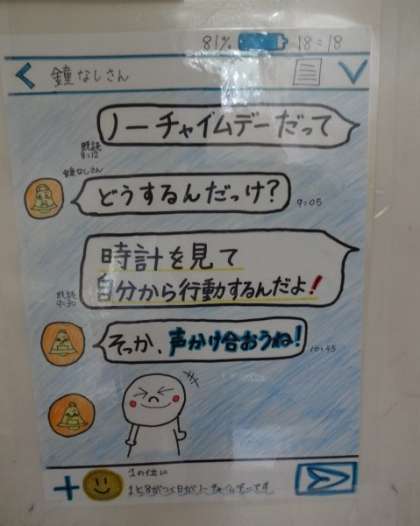 81% 18:18
鐘なしさん
ノーチャイムデーだって
既読
鐘なしさん
どうするんだっけ?
9:05
時計を見て
自分から行動するんだよ!
既読
9:30
そっか、声かけ合おうね!
10:45
1の位に
1と8がつく日がノーチャイムデーです